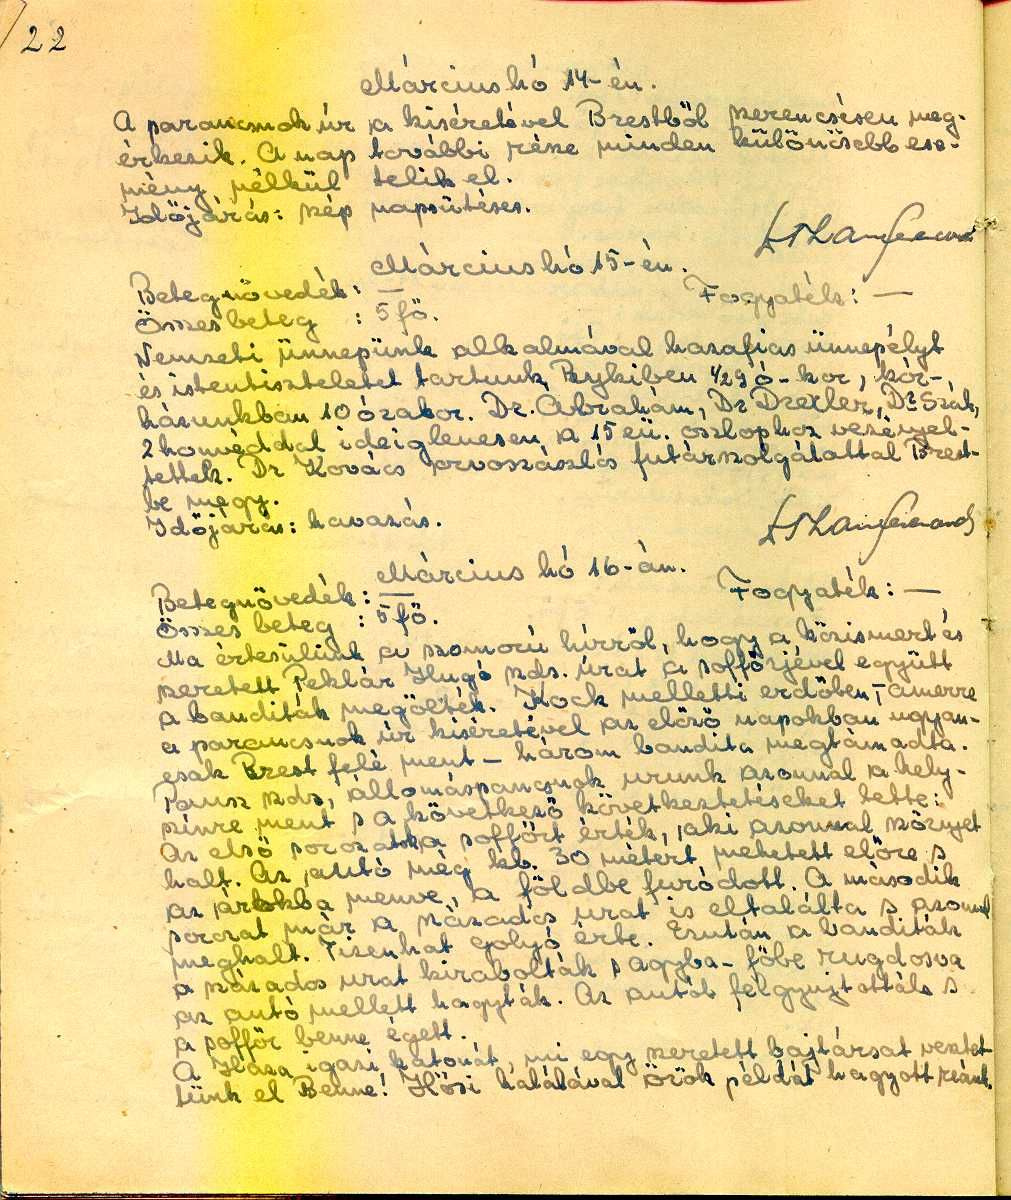 22
Március hó 14-én.
A parancsnok úr a kiséretével Brestből szerencsésen meg-
érkezik. A nap további része minden különösebb ese-
mény nélkül telik el.
Időjárás: szép napsütéses.
Március hó 15-én.
Betegnövedék: — Fogyaték: —
Összes beteg : 5 fő.
Nemzeti ünnepünk alkalmával hazafias ünnepélyt
és istentiszteletet tartunk, Rykiben 1/29 ó-kor, kór-
házunkban 10 órakor. Dr. Ábrahám, Dr Drexler, Dr Szák,
2 honvéddal ideiglenesen a 15 eü. oszlophoz vezényel-
tettek. Dr Kovács orvoszászlós futárszolgálattal Brest-
be megy.
Időjárás: havazás.
Március hó 16-án.
Betegnövedék: — Fogyaték: —
Összes beteg : 5 fő.
Ma értesülünk a szomorú hírről, hogy a közismert és
szeretett Peklár Hugó szds. urat a soffőrjével együtt
a banditák megölték. Kock melletti erdőben – amerre
a parancsnok úr kiséretével az előző napokban ugyan-
csak Brest felé ment – három bandita megtámadta.
Pausz szds, állomáspancsnok urunk azonnal a hely-
szinre ment s a következő következtetéseket tette:
Az első sorozat a soffőrt érték, aki azonnal szörnyet
halt. Az autó még kb. 30 métert mehetett előre s
az árokba menve a földbe furódott. A második
sorozat már a százados urat is eltalálta s azonnal
meghalt. Tizenhat golyó érte. Ezután a banditák
a százados urat kirabolták s agyba-főbe rugdosva
az autó mellett hagyták. Az autót felgyujtották s
a soffőr benne égett.
A Haza igazi katonát, mi egy szeretett bajtársat vesztet-
tünk el Benne! Hősi halálával örök példát hagyott reánk.